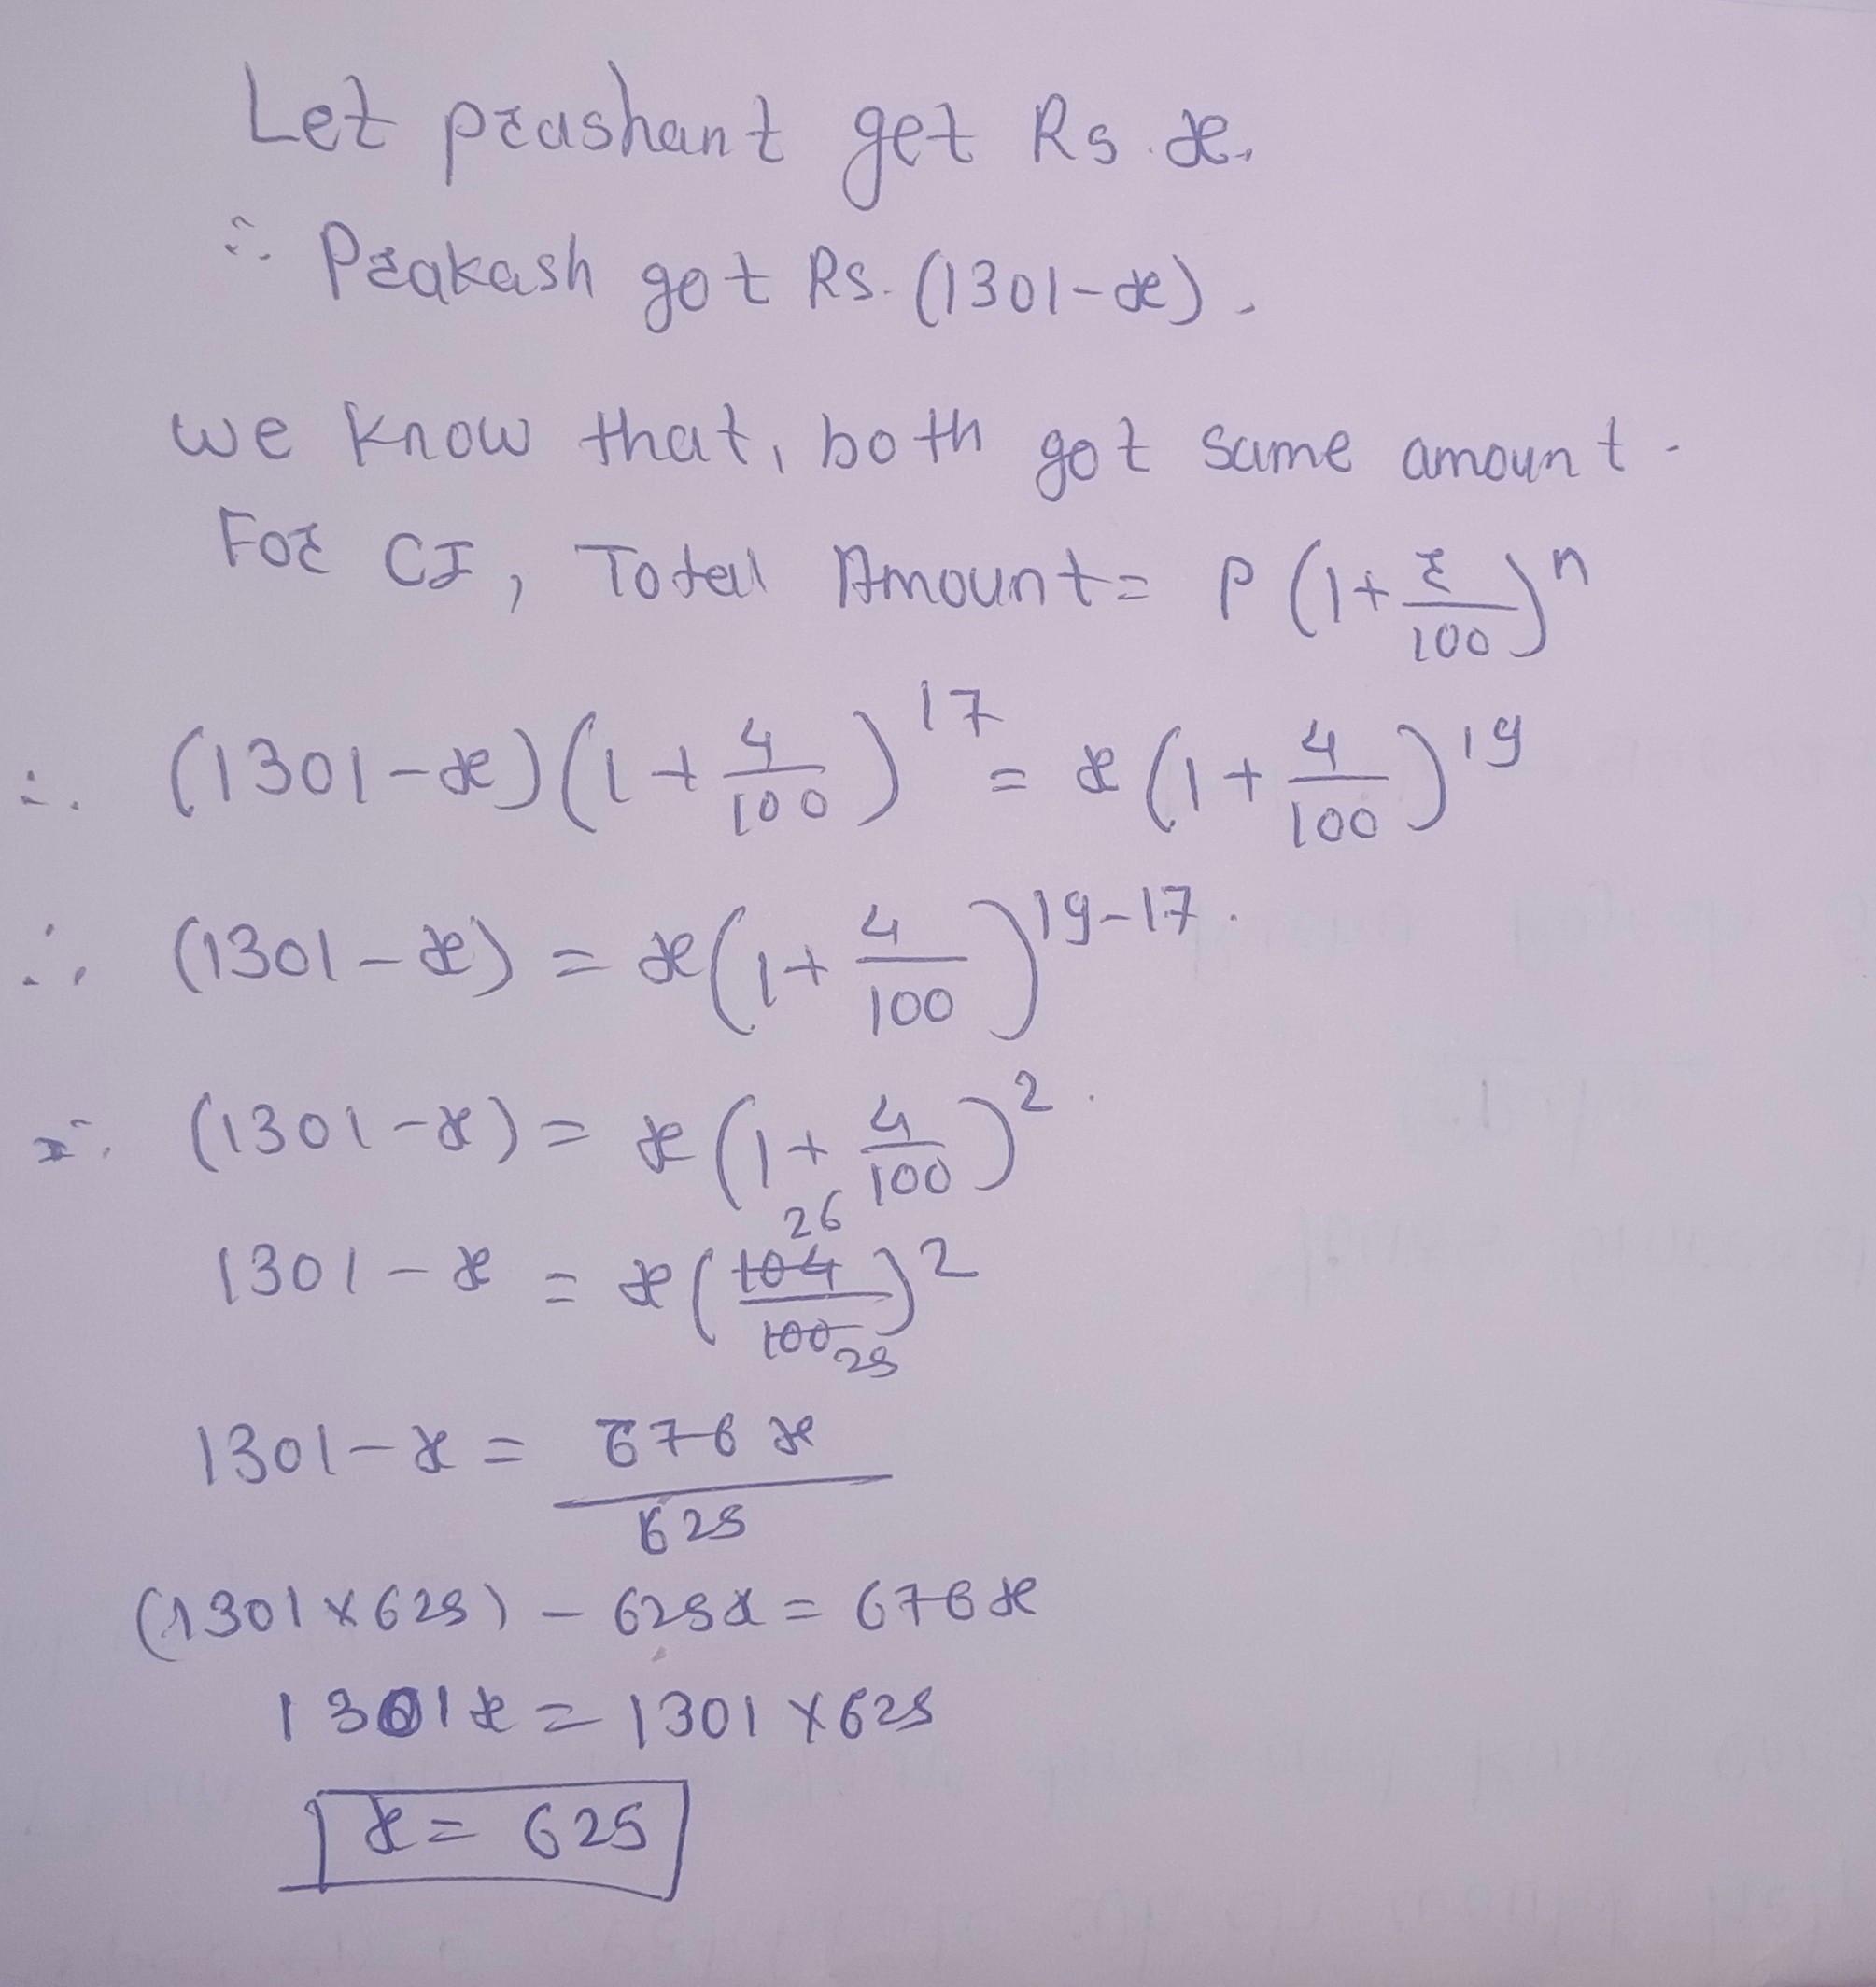 Let prashant get Rs. x.
∴ Prakash got Rs. (1301-x).
we know that, both got same amount.
For CI, Total Amount = P (1 + r/100)^n
∴ (1301-x) (1 + 4/100)^17 = x (1 + 4/100)^19
∴ (1301-x) = x (1 + 4/100)^19-17.
∴ (1301-x) = x (1 + 4/100)^2.
26
1301-x = x (104/100)^2
25
1301-x = 676x/625
(1301×625) - 625x = 676x
1301x = 1301×625
x = 625